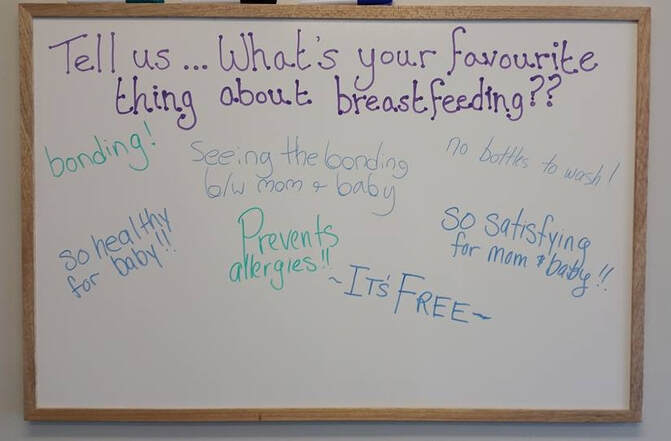 Tell us... What's your favourite
thing about breastfeeding??
bonding!
Seeing the bonding
b/w mom & baby
no bottles to wash!
so healthy
for baby!!
Prevents
allergies!!
So satisfying
for mom & baby!!
~It's FREE~